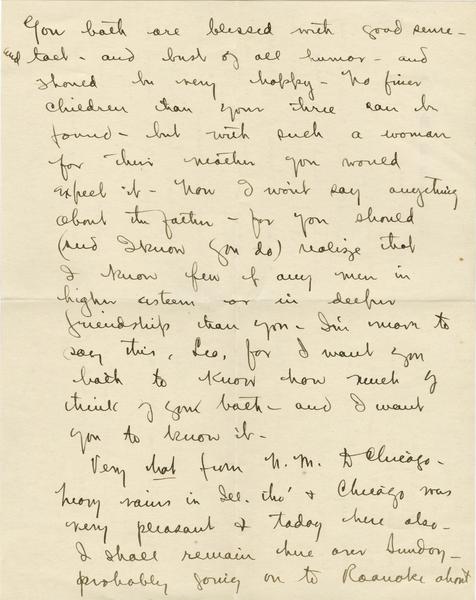 You both are blessed with good sense -
and tact - and best of all humor - and
should be very happy - No finer
children than your three can be
found - but with such a woman
for their mother you would
expect it - Now I won't say anything
about the father - for you should
(and I know you do) realize that
I know few if any men in
higher esteem or in deeper
friendship than you - I'm
say this, Leo, for I want you
both to know how much I
think of you both - and I want
you to know it -
Very hot from N. M. to Chicago -
heavy rains in Ill. tho' & Chicago was
very pleasant & today here also -
I shall remain here over Sunday -
probably going on to Roanoke about